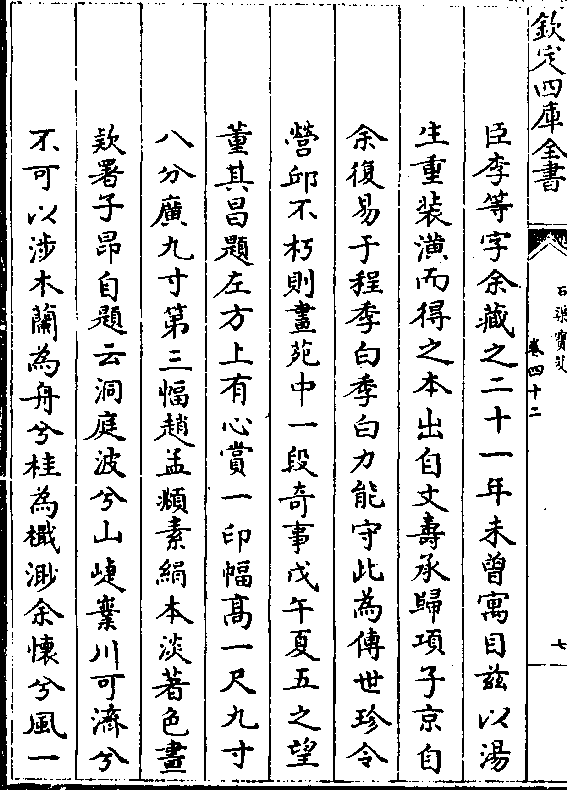 欽定四庫全書
石渠寶笈
卷四十二
七
臣李等字余藏之二十一年未曾寓目茲以湯
生重裝潢而得之本出自文壽承歸項子京自
余復易于程季白季白力能守此為傳世珍令
營邱不朽則畫苑中一段奇事戊午夏五之望
董其昌題左方上有心賞一印幅高一尺九寸
八分廣九寸第三幅趙孟頫素絹本淡著色畫
欵署子昂自題云洞庭波兮山崨嶪川可濟兮
不可以涉木蘭為舟兮桂為檝渺余懷兮風一